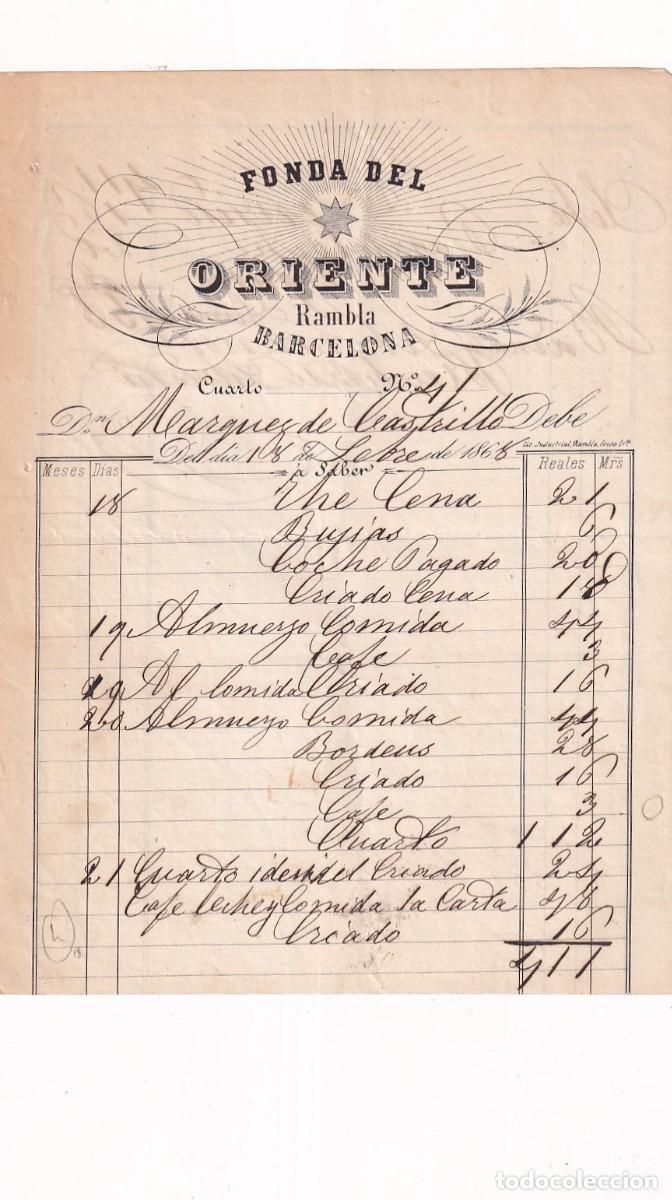 FONDA DEL
ORIENTE
Rambla
BARCELONA
Cuarto Nº 41
Dn Marquez de Castrillo Debe
Del dia 18 de Febre de 1868
Lit. Industrial, Rambla,
á Saber
Meses Dias Reales Mrs
18 The Cena 21
Bujias 6
Coche Pagado 20
Criado Cena 18
19 Almuerzo Comida 44
Cafe 3
19 Al Comida Criado 16
20 Almuerzo Comida 44
Bordeus 28
Criado 16
Cafe 3
Cuarto 112
21 Cuarto idem del Criado 24
Cafe leche y Comida la Carta 48
Criado 16
411
todocoleccion
todocoleccion.net